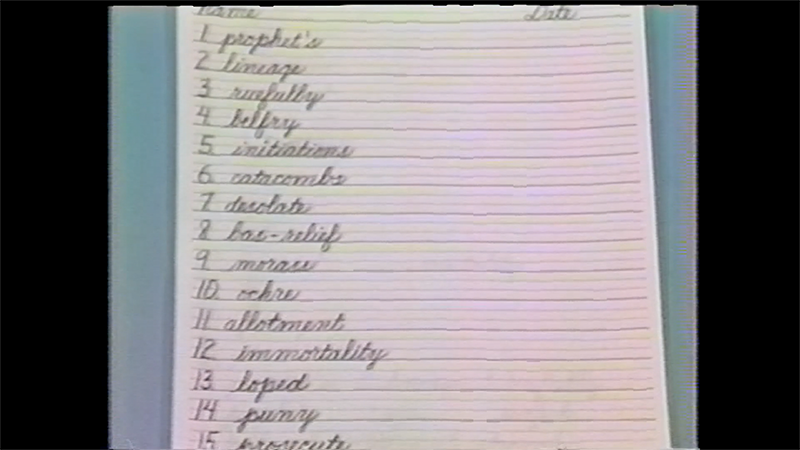 Name Date
1 prophet's
2 lineage
3 ruefully
4 belfry
5 initiations
6 catacombs
7 desolate
8 bas-relief
9 morass
10 ochre
11 allotment
12 immortality
13 loped
14 puny
15 prosecute